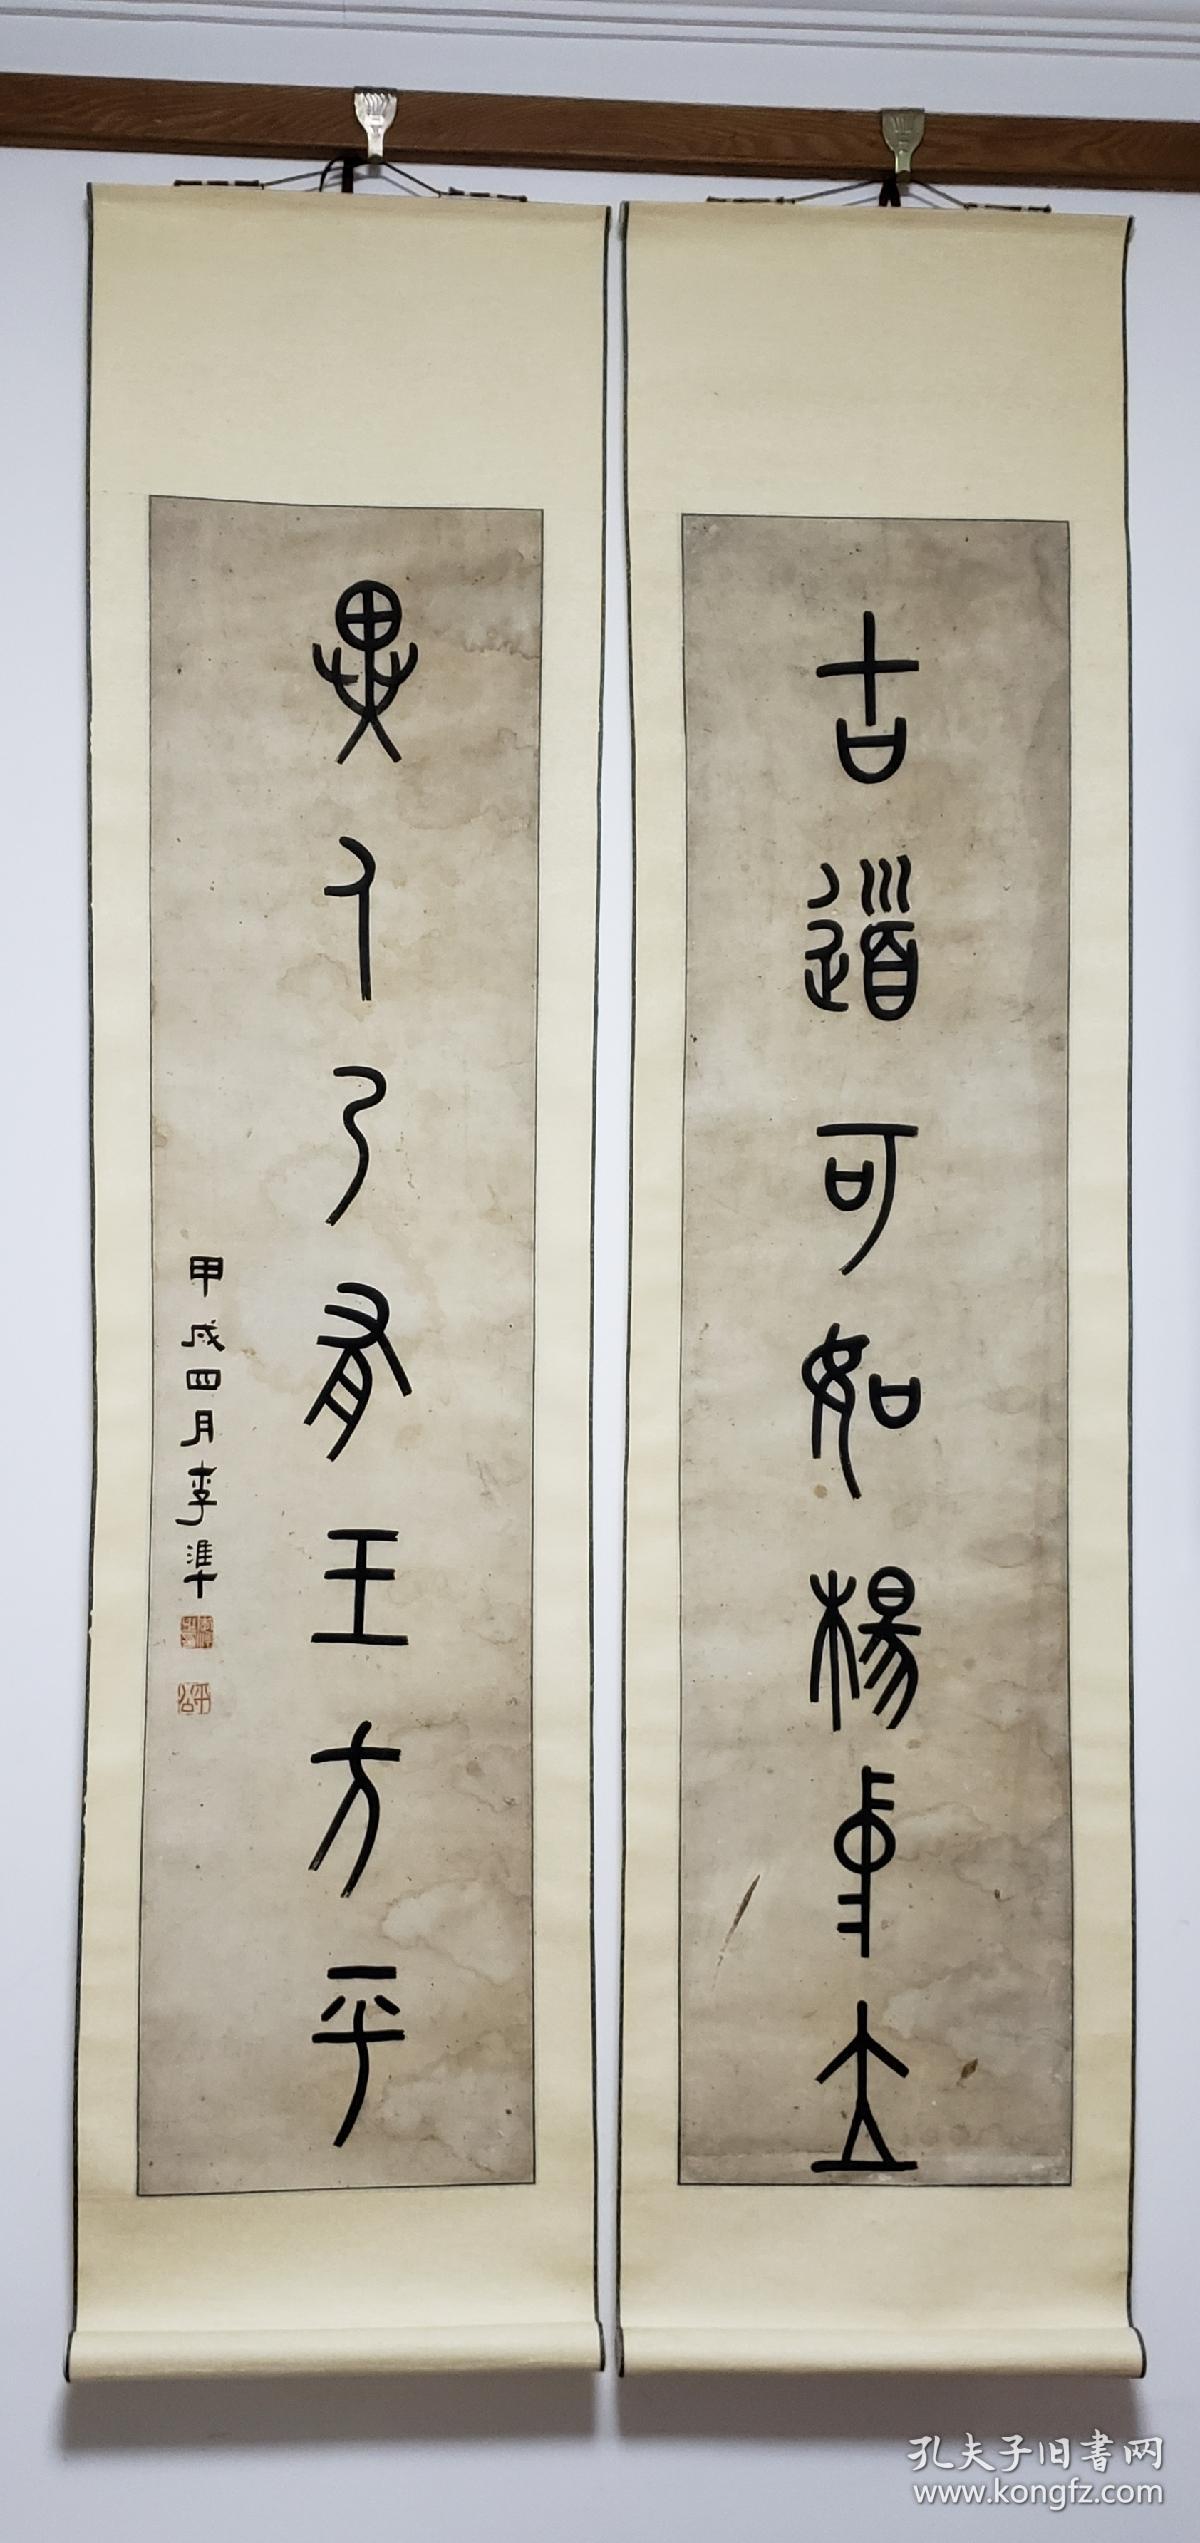 古道可如楊卓立
異人乃有王方平
甲戌四月李準
孔夫子旧書网
www.kongfz.com